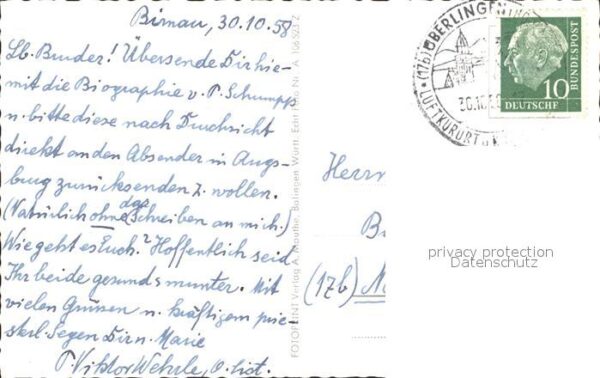 Birnau, 30.10.58
Lb. Bruder! Übersende Dir hie-
mit die Biographie v. P. Schumpp
u. bitte diese nach Durchsicht
direkt an den Absender in Augs-
burg zurücksenden z. wollen.
(Natürlich ohne das Schreiben an mich.)
Wie geht es Euch? Hoffentlich seid
Ihr beide gesund u. munter. Mit
vielen Grüssen u. kräftigem prie-
sterl. Segen Dir u. Marie
P. Viktor Wehrle, O. Cist.
FOTOPRINT Verlag A. Mauthe, Balingen Württ.
(17b) ÜBERLINGEN
30.10.
LUFTKURORT
DEUTSCHE
BUNDESPOST
10
Herrn
(17b)
privacy protection
Datenschutz